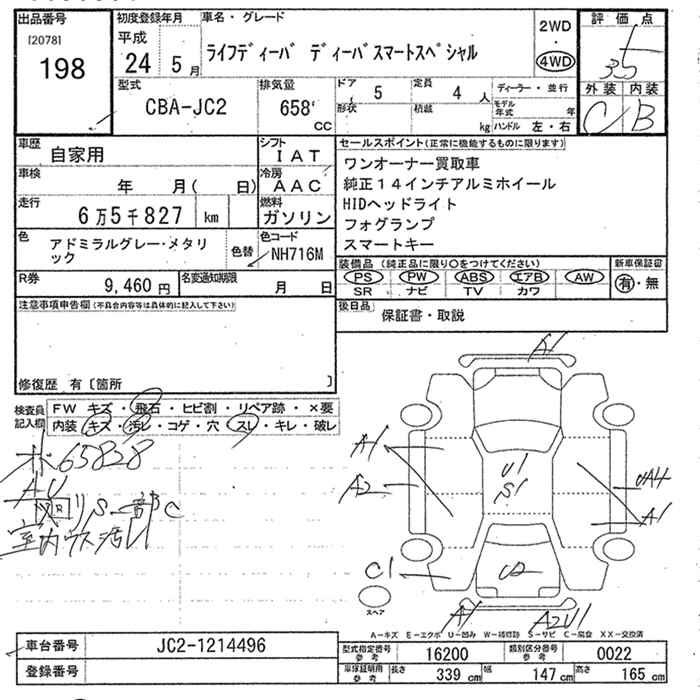 出品番号
[2078]
198
初度登録年月
平成
24 5月
車名・グレード
ライフディーバ ディーバスマートスペシャル
2WD
・
4WD
評価点
3.5
外装 内装
C B
型式
CBA-JC2
排気量
658
CC
ドア 5
定員 4人
形状
積載 kg
ディーラー・並行
モデル年式 年
ハンドル 左・右
車歴
自家用
シフト
IAT
車検
年 月( 日)
冷房
AAC
走行
6万5千827 km
燃料
ガソリン
色
アドミラルグレー・メタリ
ック
色替
色コード
NH716M
R券
9,460円
名変通知期限
月 日
セールスポイント(正常に機能するものに限ります)
ワンオーナー買取車
純正14インチアルミホイール
HIDヘッドライト
フォグランプ
スマートキー
装備品(純正品に限り○をつけてください)
PS PW ABS エアB AW
SR ナビ TV カワ
新車保証書
有・無
後日品
保証書・取説
注意事項申告欄(不具合内容等は具体的に記入して下さい)
修復歴 有〔箇所 〕
検査員
記入欄
FW キズ・飛石・ヒビ割・リペア跡・×要
内装 キズ・汚レ・コゲ・穴・スレ・キレ・破レ
65828
AU
R
リS 一部C
室内ウス汚レ
A1
A1
A2
U1
S1
UA4
A1
C1
U2
スペア
A1
A2U1
A-キズ E-エクボ U-凹み W-補修跡 S-サビ C-腐食 XX-交換済
車台番号
JC2-1214496
登録番号
型式指定番号
参考
16200
類別区分番号
参考
0022
車庫証明用
参考
長さ 339cm
幅 147cm
高さ 165cm